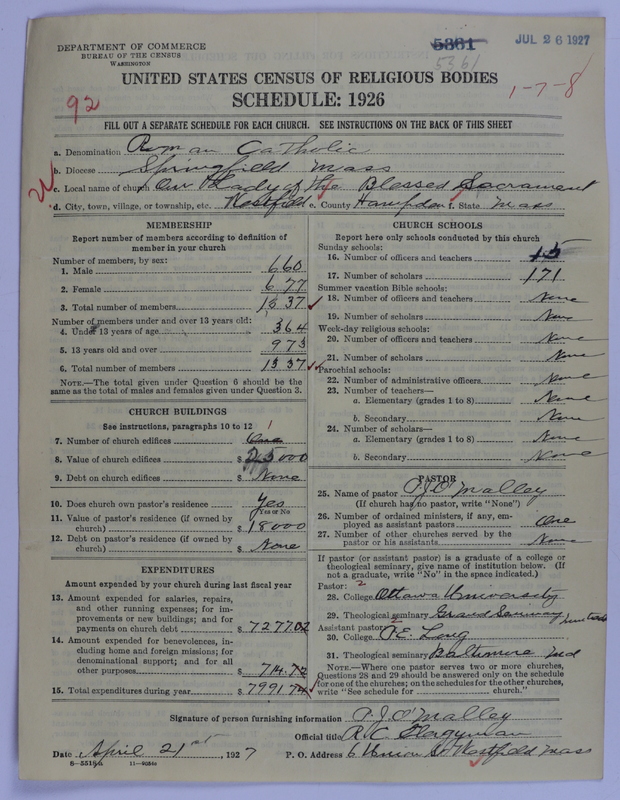 DEPARTMENT OF COMMERCE
BUREAU OF THE CENSUS
WASHINGTON
5361
5361
JUL 26 1927
UNITED STATES CENSUS OF RELIGIOUS BODIES
SCHEDULE: 1926
92
1-7-8
FILL OUT A SEPARATE SCHEDULE FOR EACH CHURCH. SEE INSTRUCTIONS ON THE BACK OF THIS SHEET
a. Denomination Roman Catholic
b. Diocese Springfield Mass
c. Local name of church Our Lady of the Blessed Sacrament
d. City, town, village, or township, etc. Westfield e. County Hampden f. State Mass
MEMBERSHIP
Report number of members according to definition of
member in your church
Number of members, by sex:
1. Male 660
2. Female 677
3. Total number of members 1337
Number of members under and over 13 years old:
4. Under 13 years of age 364
5. 13 years old and over 973
6. Total number of members 1337
NOTE.—The total given under Question 6 should be the
same as the total of males and females given under Question 3.
CHURCH BUILDINGS
See instructions, paragraphs 10 to 12
7. Number of church edifices One 1
8. Value of church edifices $ 25000
9. Debt on church edifices $ None
10. Does church own pastor's residence Yes
Yes or No
11. Value of pastor's residence (if owned by
church) $ 18000
12. Debt on pastor's residence (if owned by
church) $ None
EXPENDITURES
Amount expended by your church during last fiscal year
13. Amount expended for salaries, repairs,
and other running expenses; for im-
provements or new buildings; and for
payments on church debt $ 7277.02
14. Amount expended for benevolences, in-
cluding home and foreign missions; for
denominational support; and for all
other purposes $ 714.72
15. Total expenditures during year $ 7991 74
CHURCH SCHOOLS
Report here only schools conducted by this church
Sunday schools:
16. Number of officers and teachers 15
17. Number of scholars 171
Summer vacation Bible schools:
18. Number of officers and teachers None
19. Number of scholars None
Week-day religious schools:
20. Number of officers and teachers None
21. Number of scholars None
Parochial schools:
22. Number of administrative officers None
23. Number of teachers—
a. Elementary (grades 1 to 8) None
b. Secondary None
24. Number of scholars—
a. Elementary (grades 1 to 8) None
b. Secondary None
PASTOR
25. Name of pastor P.J. O'Malley
(If church has no pastor, write "None")
26. Number of ordained ministers, if any, em-
ployed as assistant pastors One
27. Number of other churches served by the
pastor or his assistants None
If pastor (or assistant pastor) is a graduate of a college or
theological seminary, give name of institution below. (If
not a graduate, write "No" in the space indicated.)
Pastor: 2
28. College Ottawa University
29. Theological seminary Grand Seminary Montreal
Assistant pastor: 2
30. College P.E. Long
31. Theological seminary Baltimore Md
NOTE.—Where one pastor serves two or more churches,
Questions 28 and 29 should be answered only on the schedule
for one of the churches; on the schedules for the other churches,
write "See schedule for church."
Signature of person furnishing information P.J. O'Malley
Official title R.C. Clergyman
Date April 21st, 1927 P. O. Address 6 Union St Westfield Mass
8-5518a 11-9034a